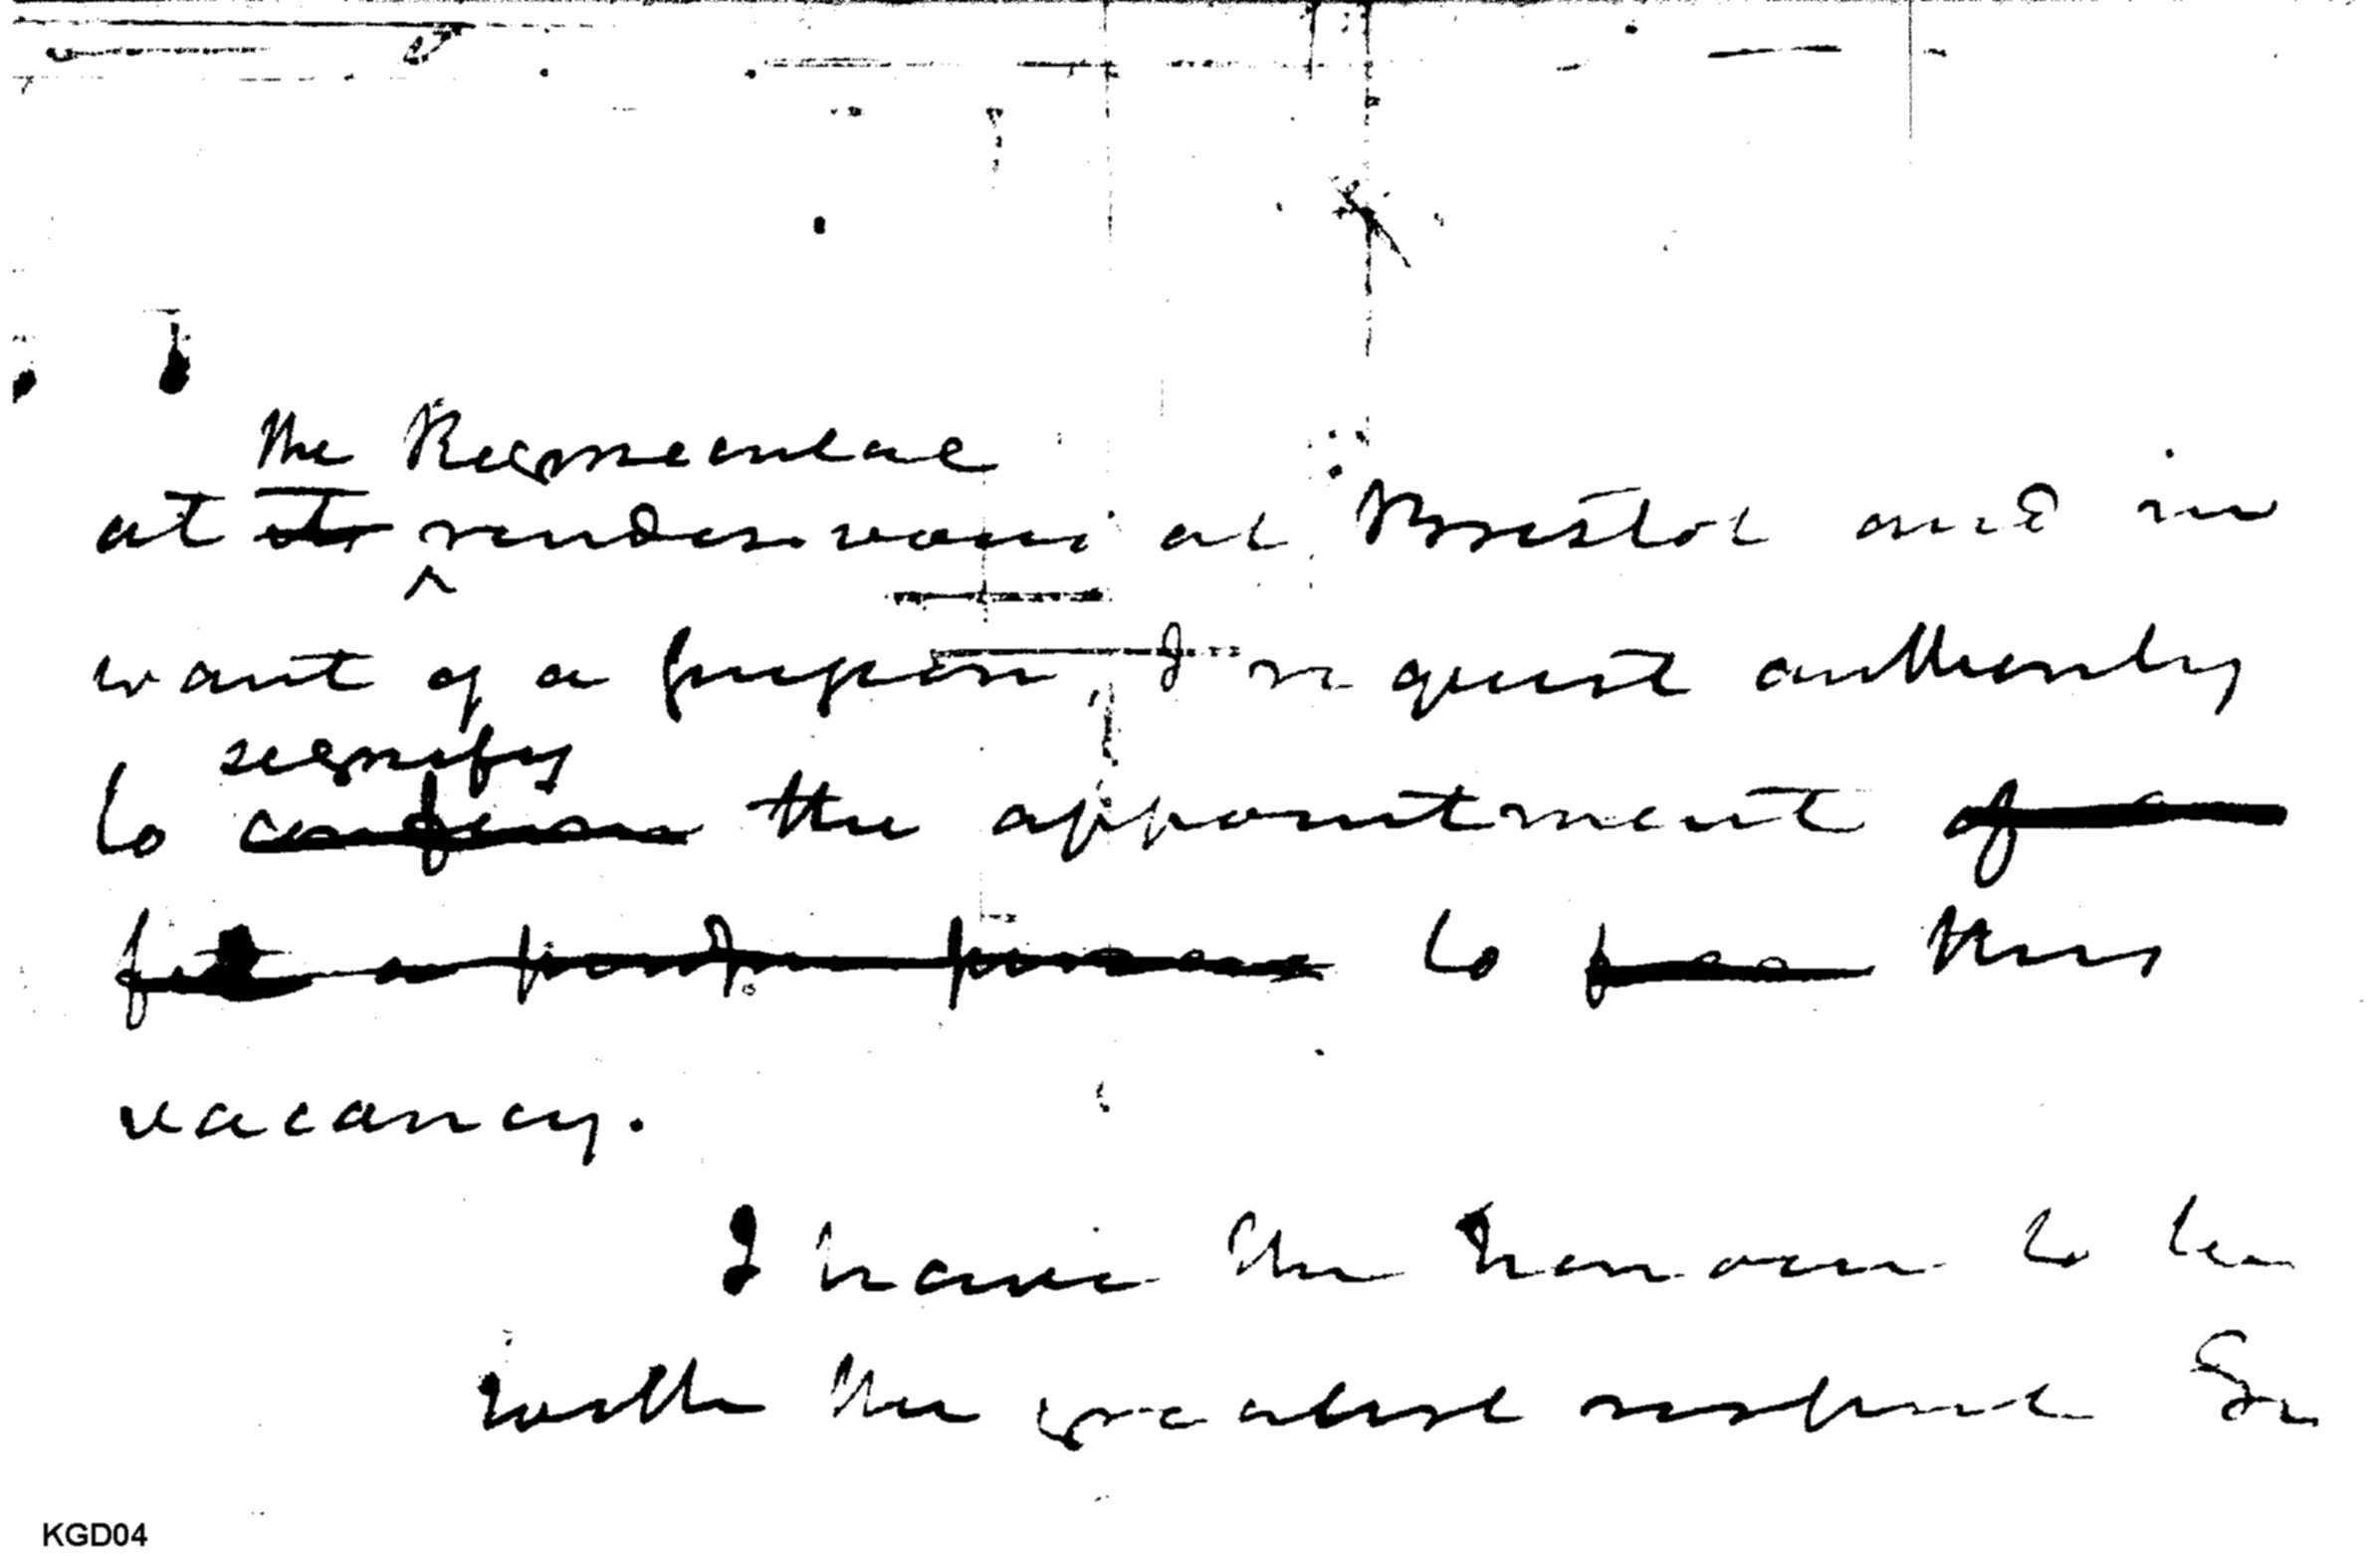 the Regimental
at its rendezvous at Bristol and in
want of a surgeon, I request authority
signify
to confirm the appointment of a
to this
vacancy.
I have the honour to be
with the greatest respect Sir
KGD04